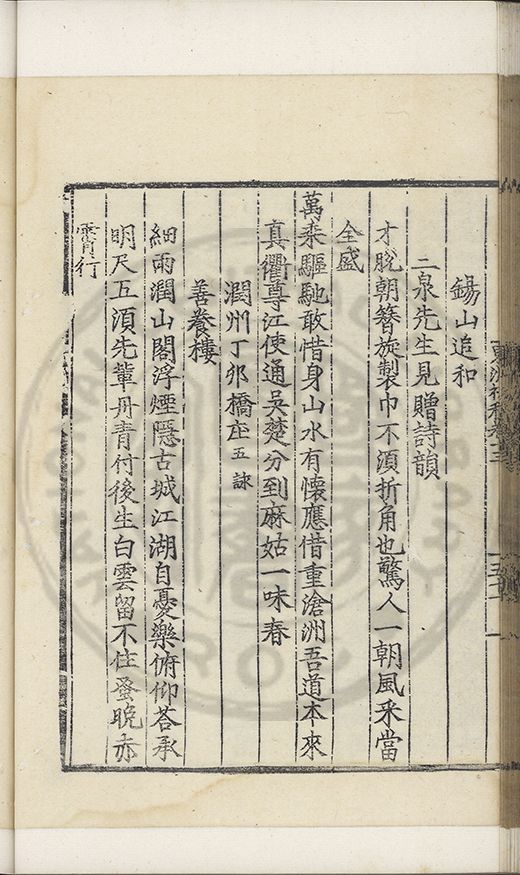 錫山追和
二泉先生見贈詩韻
才脫朝簪旋製巾不須折角也驚人一朝風采當
全盛
萬乘驅馳敢惜身山水有懷應借重滄洲吾道本來
真衢尊江使通吳楚分到麻姑一味春
潤州丁卯橋庄五詠
善養樓
細雨潤山閣浮煙隱古城江湖自憂樂俯仰荅承
明尺五須先輩丹青付後生白雲留不住蚤晚赤
霄行